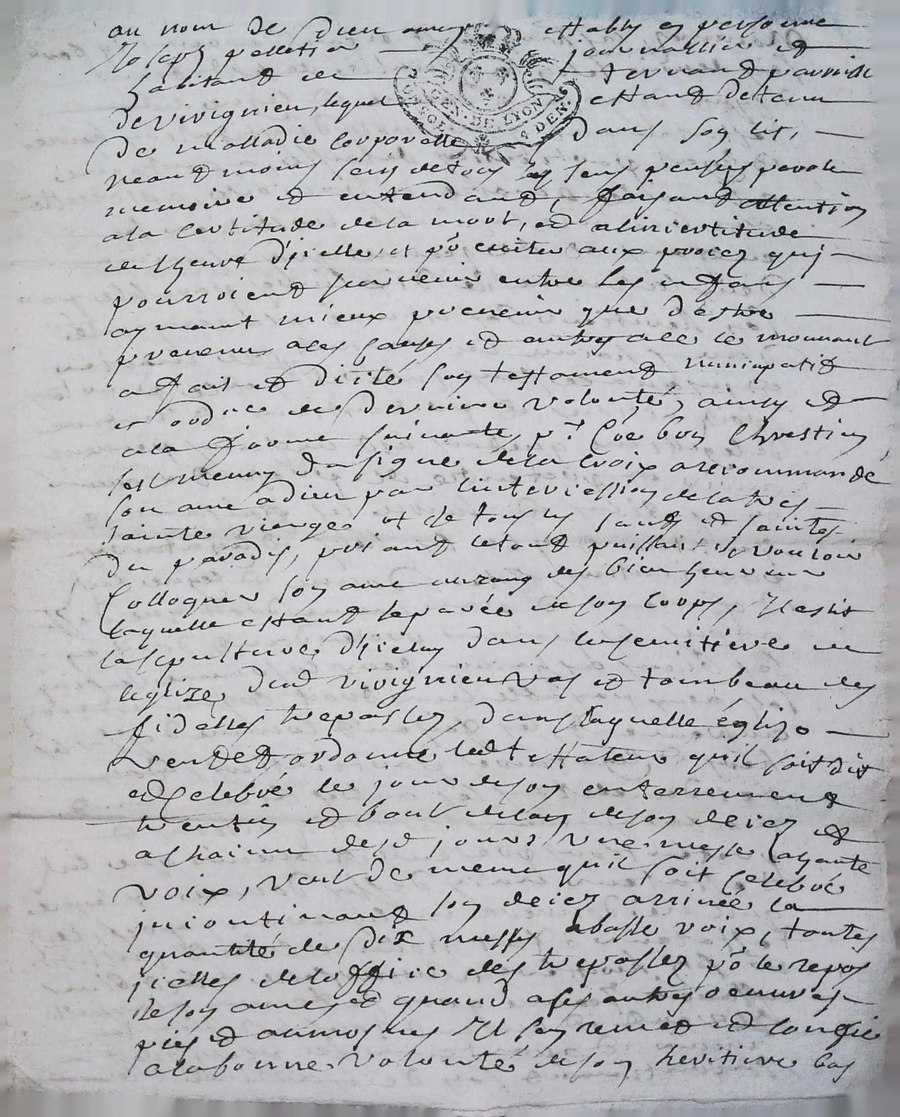 au nom de dieu amen establÿ en personne
Joseph pelletier journallier et
habitant de tenant parroisse
de vivignieu, lequel estant detenu
GEN. DE LYON 4 DEN.
de malladie corporelle dans son lit,
neantmoins sein de tous ses sens pensers parolle
memoire et entendant, faisant attention
a la certitude de la mort, et a lincertitude
de lheure d'jcelle et pr esviter aux procez qui
pourroient survenir entre les enfans
aymant mieux prevenir que d'estre
prevenu a ces causes et autres a ce le mouvant
a fait et dicté son testament nuncupatif
et ordce de derniere volonté, ainsy et
a la forme suivante, pt Cõe bon Chrestien
sest meuny du signe de la croix a recommandé
son ame a dieu par lintercession de la tres
sainte vierge et de tous les saints et saintes
du paradis, priant le tout puissant de vouloir
Colloquer son ame au rang des bienheureux
laquelle estant separée de son corps, Il eslit
la sepulture d'jceluy dans le semitiere de
leglize dud vivignieu vas et tombeau des
fidelles trepassez, dans laquelle église
veut et ordonne ledt testateur quil soit dit
et celebré le jour de son enterrement
trentin et bout de lan de son decez et
a chacun desd jours une messe a haute
voix, veut de meme quil soit celebré
jncontinant son decez arrivée la
quantité de dix messes a basse voix, toutes
jcelles de loffice des trepassez pr le repos
de son ame et quand a ses autres oeuvres
pies et aumosnes Il sen remet et confie
a la bonne volonté de son heritiere bas